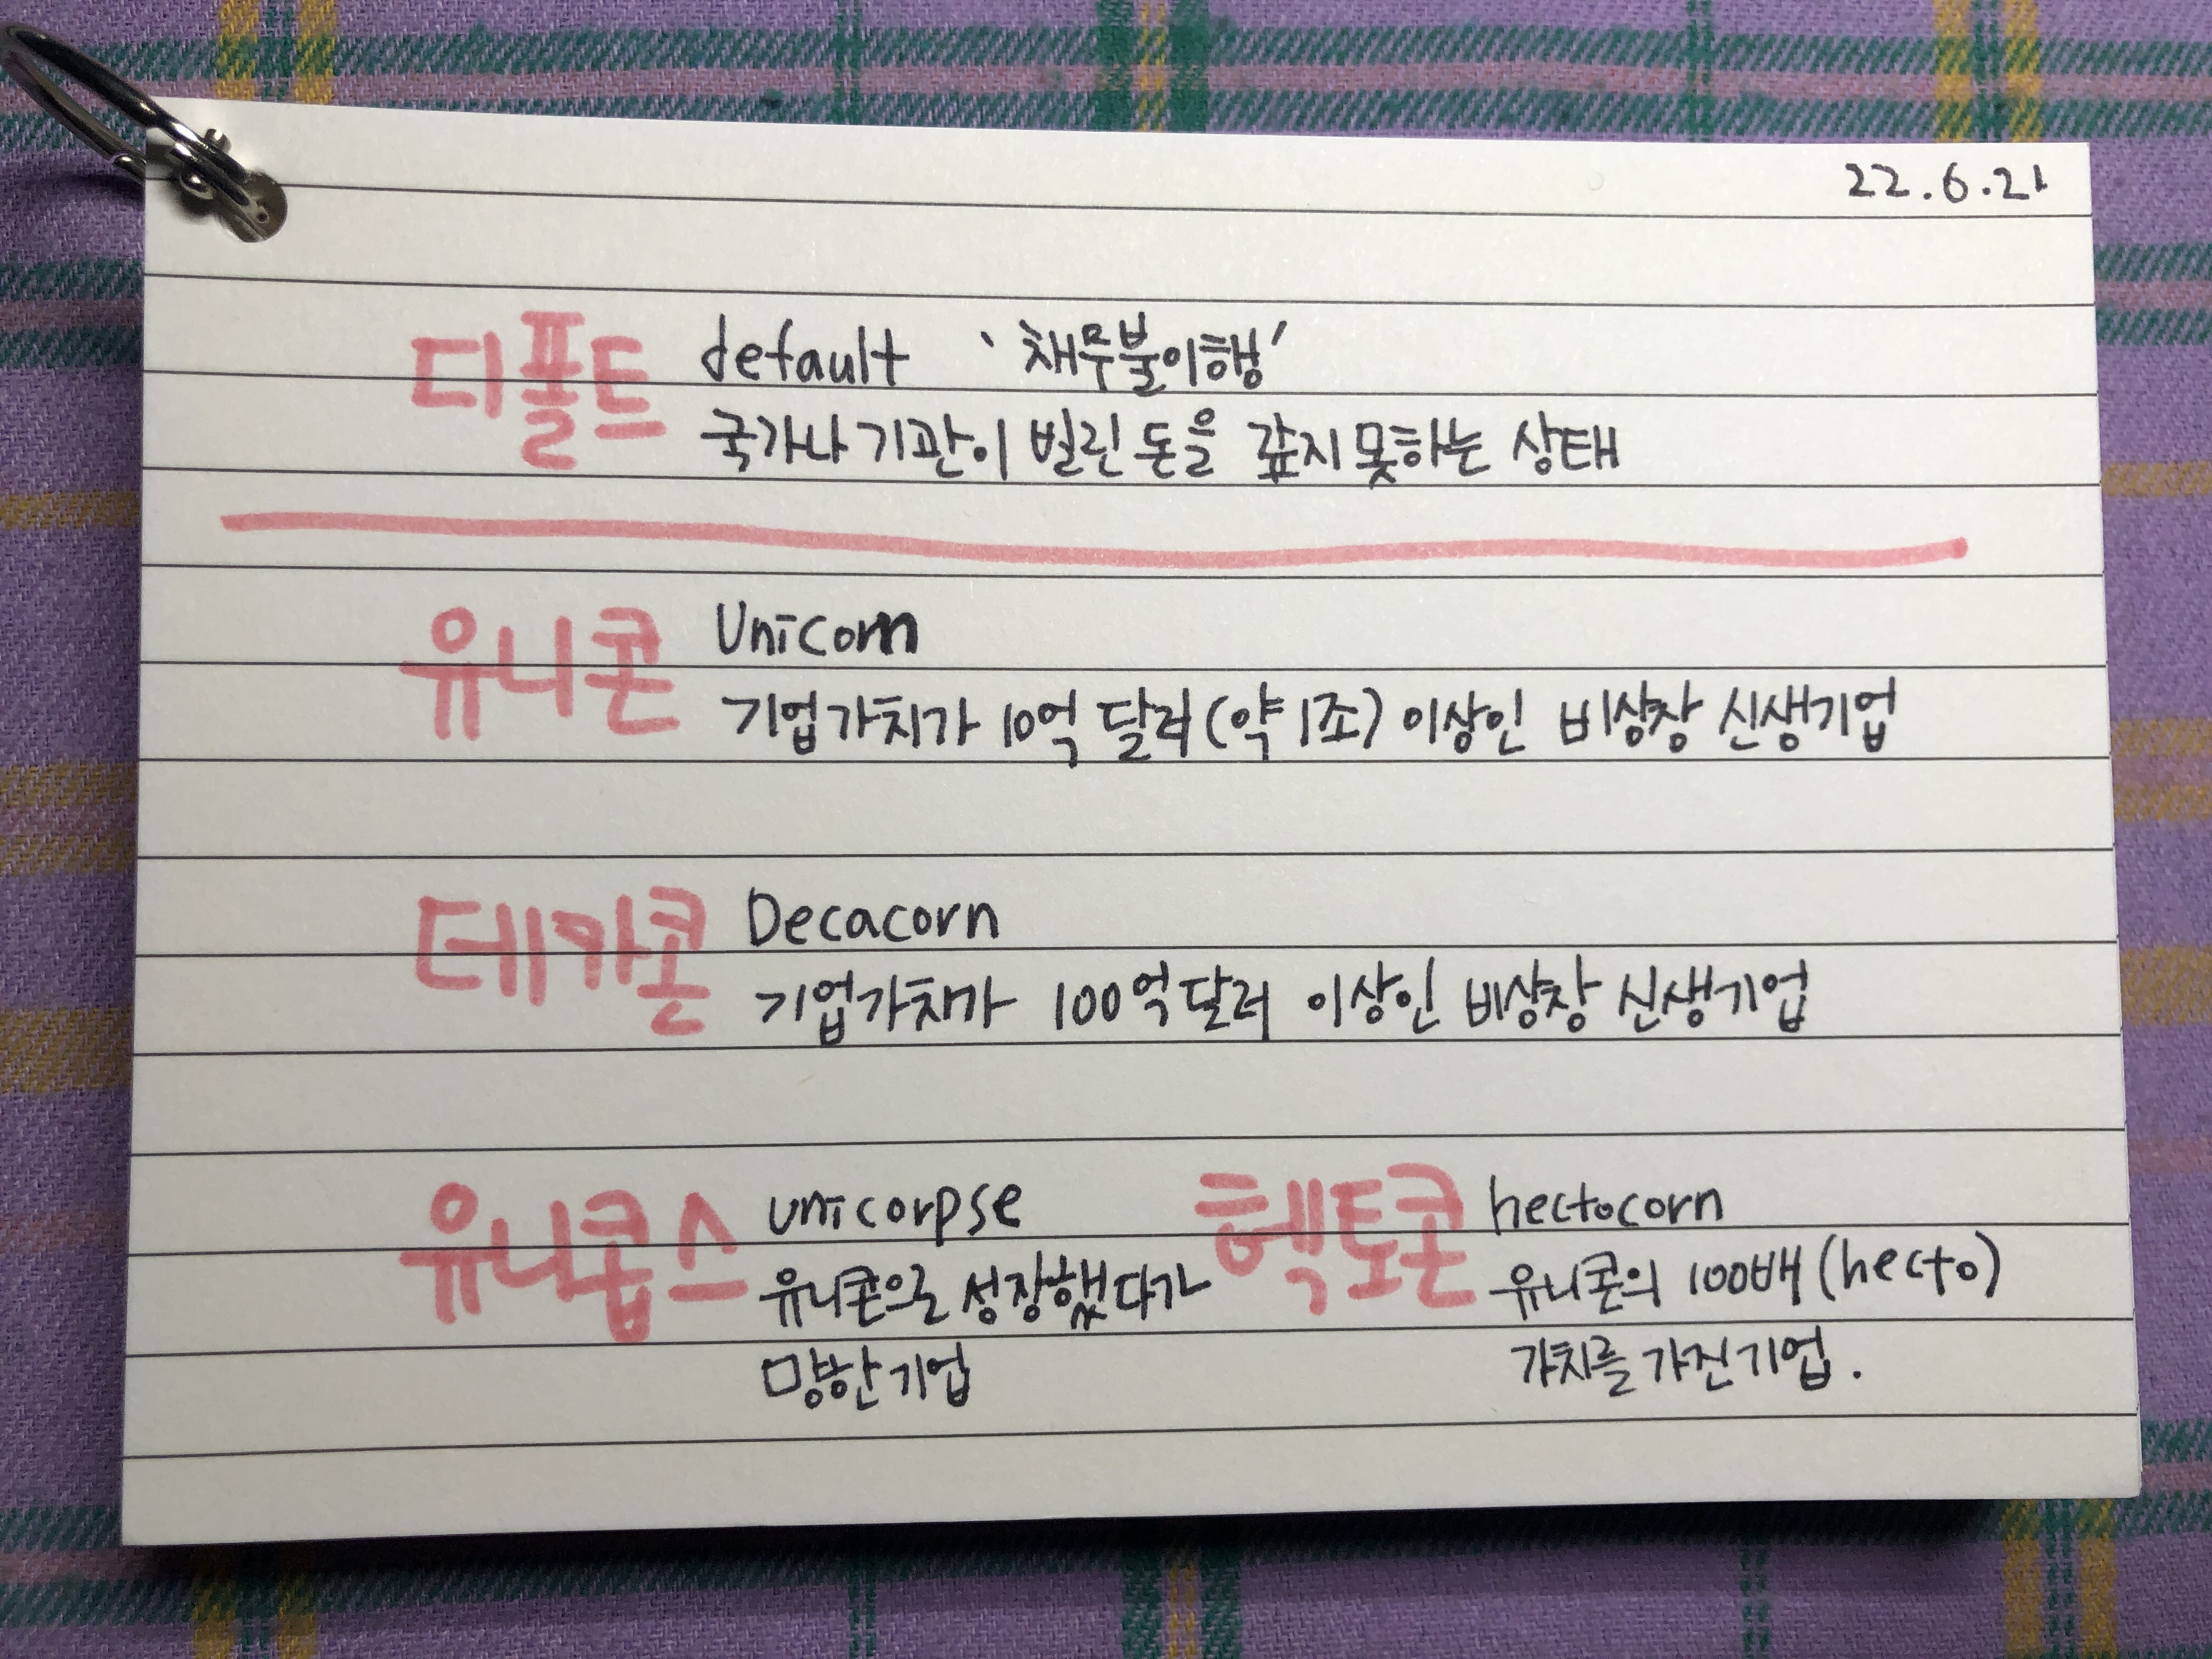 22.6.21
디폴트 default '채무불이행'
국가나 기관이 빌린 돈을 갚지 못하는 상태
유니콘 Unicorn
기업가치가 10억 달러(약 1조) 이상인 비상장 신생기업
데카콘 Decacorn
기업가치가 100억 달러 이상인 비상장 신생기업
유니콥스 unicorpse
유니콘으로 성장했다가
망한 기업
헥토콘 hectocorn
유니콘의 100배 (hecto)
가치를 가진 기업.